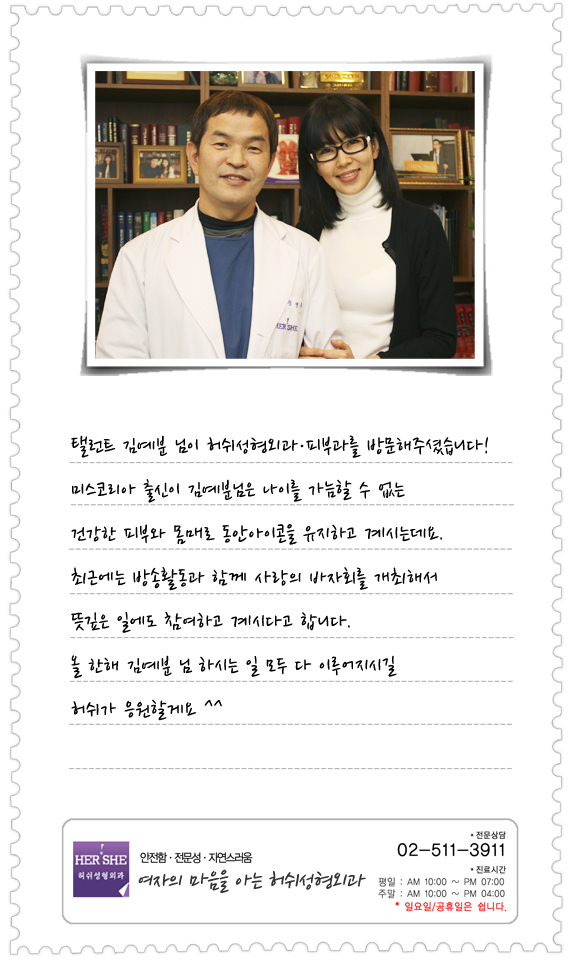 HER SHE
탤런트 김예분 님이 허쉬성형외과·피부과를 방문해주셨습니다!
미스코리아 출신이 김예분님은 나이를 가늠할 수 없는
건강한 피부와 몸매로 동안아이콘을 유지하고 계시는데요.
최근에는 방송활동과 함께 사랑의 바자회를 개최해서
뜻깊은 일에도 참여하고 계시다고 합니다.
올 한해 김예분 님 하시는 일 모두 다 이루어지시길
허쉬가 응원할게요 ^^
HER SHE
허쉬성형외과
안전함 · 전문성 · 자연스러움
여자의 마음을 아는 허쉬성형외과
전문상담
02-511-3911
진료시간
평일 : AM 10:00 ~ PM 07:00
주말 : AM 10:00 ~ PM 04:00
* 일요일/공휴일은 쉽니다.